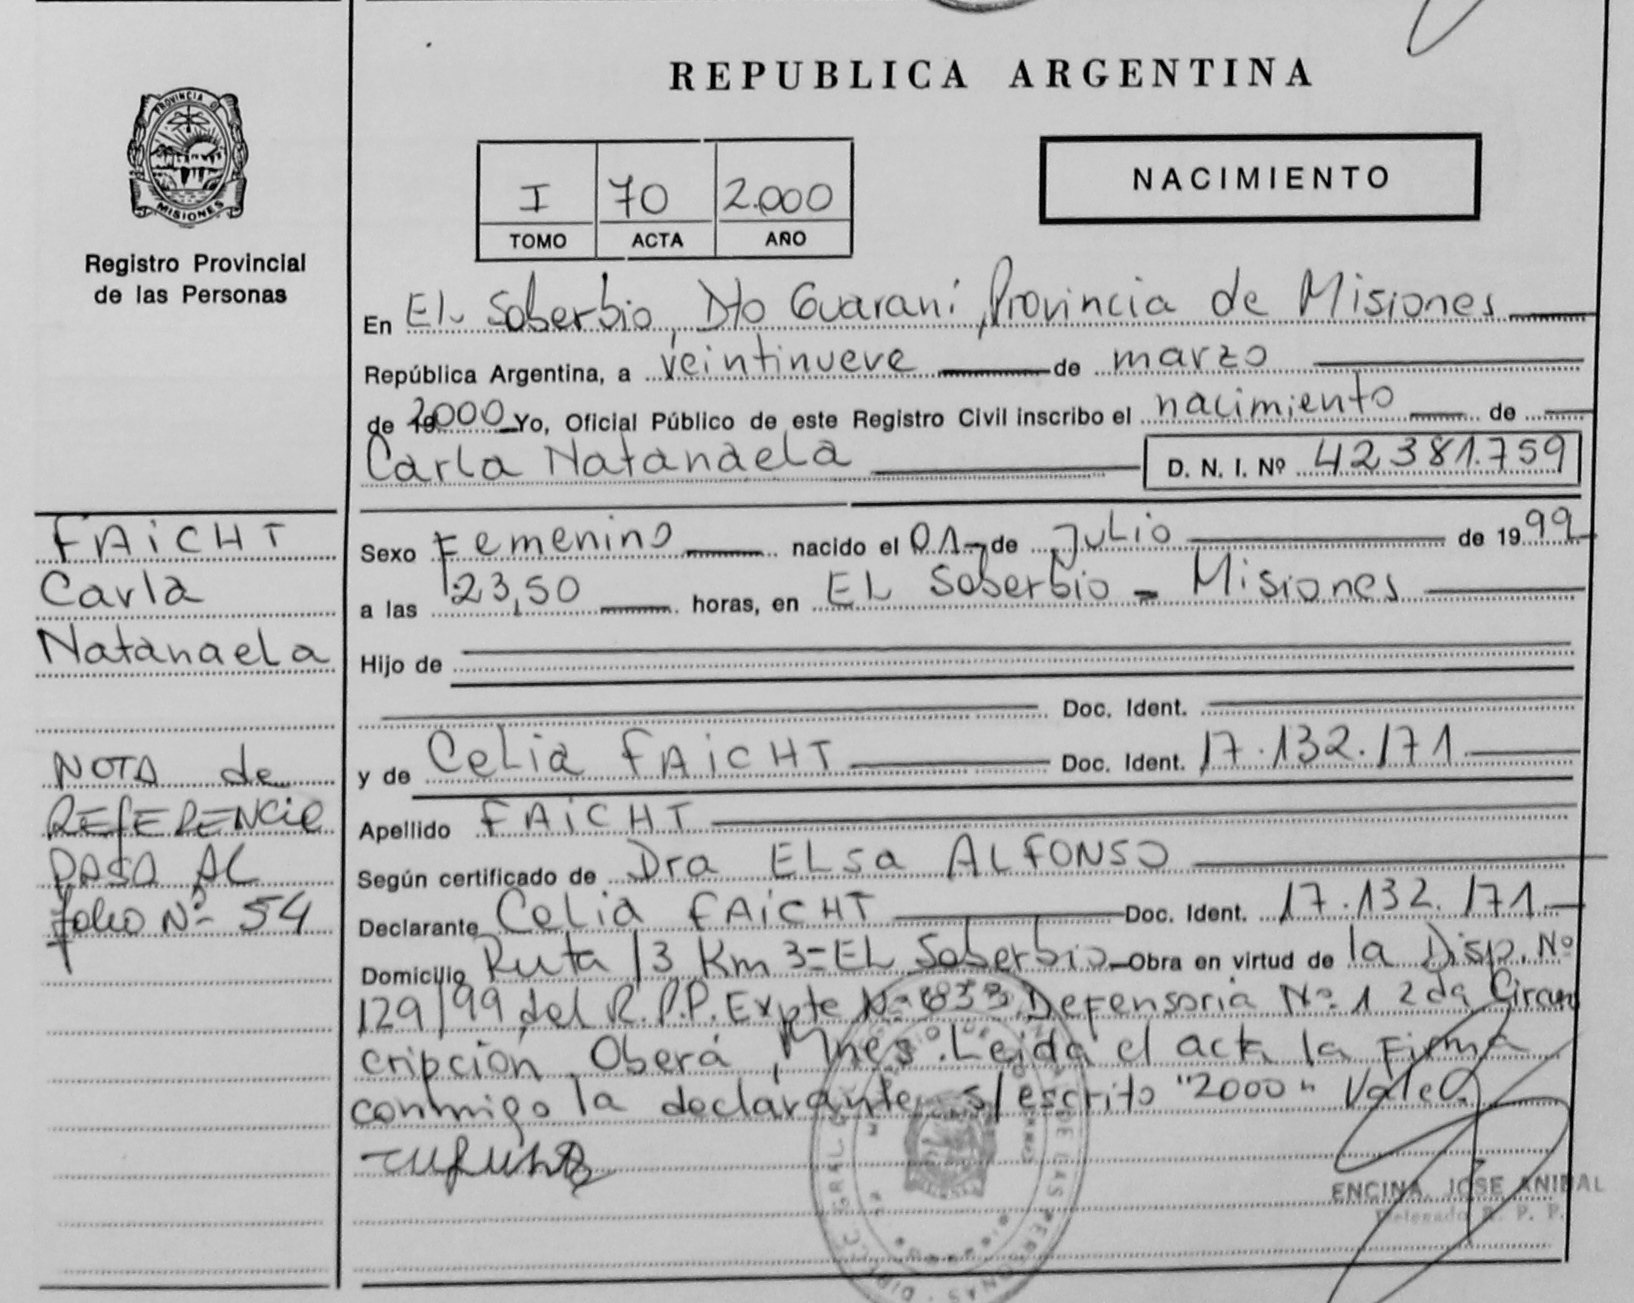 REPUBLICA ARGENTINA
PROVINCIA D
MISIONES
Registro Provincial
de las Personas
I 70 2.000
TOMO ACTA AÑO
NACIMIENTO
En El Soberbio, Dto Guaraní, Provincia de Misiones
República Argentina, a veintinueve de marzo
de 2000 Yo, Oficial Público de este Registro Civil inscribo el nacimiento de
Carla Natanaela D. N. I. Nº 42.381.759
FAiCHT
Carla
Natanaela
NOTA de
REFERENCIA
PASA AL
folio Nº 54
Sexo Femenino nacido el 01 de Julio de 1999
a las 23,50 horas, en EL Soberbio - Misiones
Hijo de
Doc. Ident.
y de Celia FAiCHT Doc. Ident. 17.132.171
Apellido FAiCHT
Según certificado de Dra ELsa ALFONSO
Declarante Celia FAiCHT Doc. Ident. 17.132.171
Domicilio Ruta 13 Km 3-EL Soberbio Obra en virtud de la Disp. Nº
129/99 del R.P.P. Expte Nº 833 Defensoria Nº 1 2da Circuns
cripción Oberá, Mnes. Leida el acta la Firma
conmigo la declarante s/escrito "2000" Vale
ENCINA, JOSE ANIBAL
Delegado R. P. P.